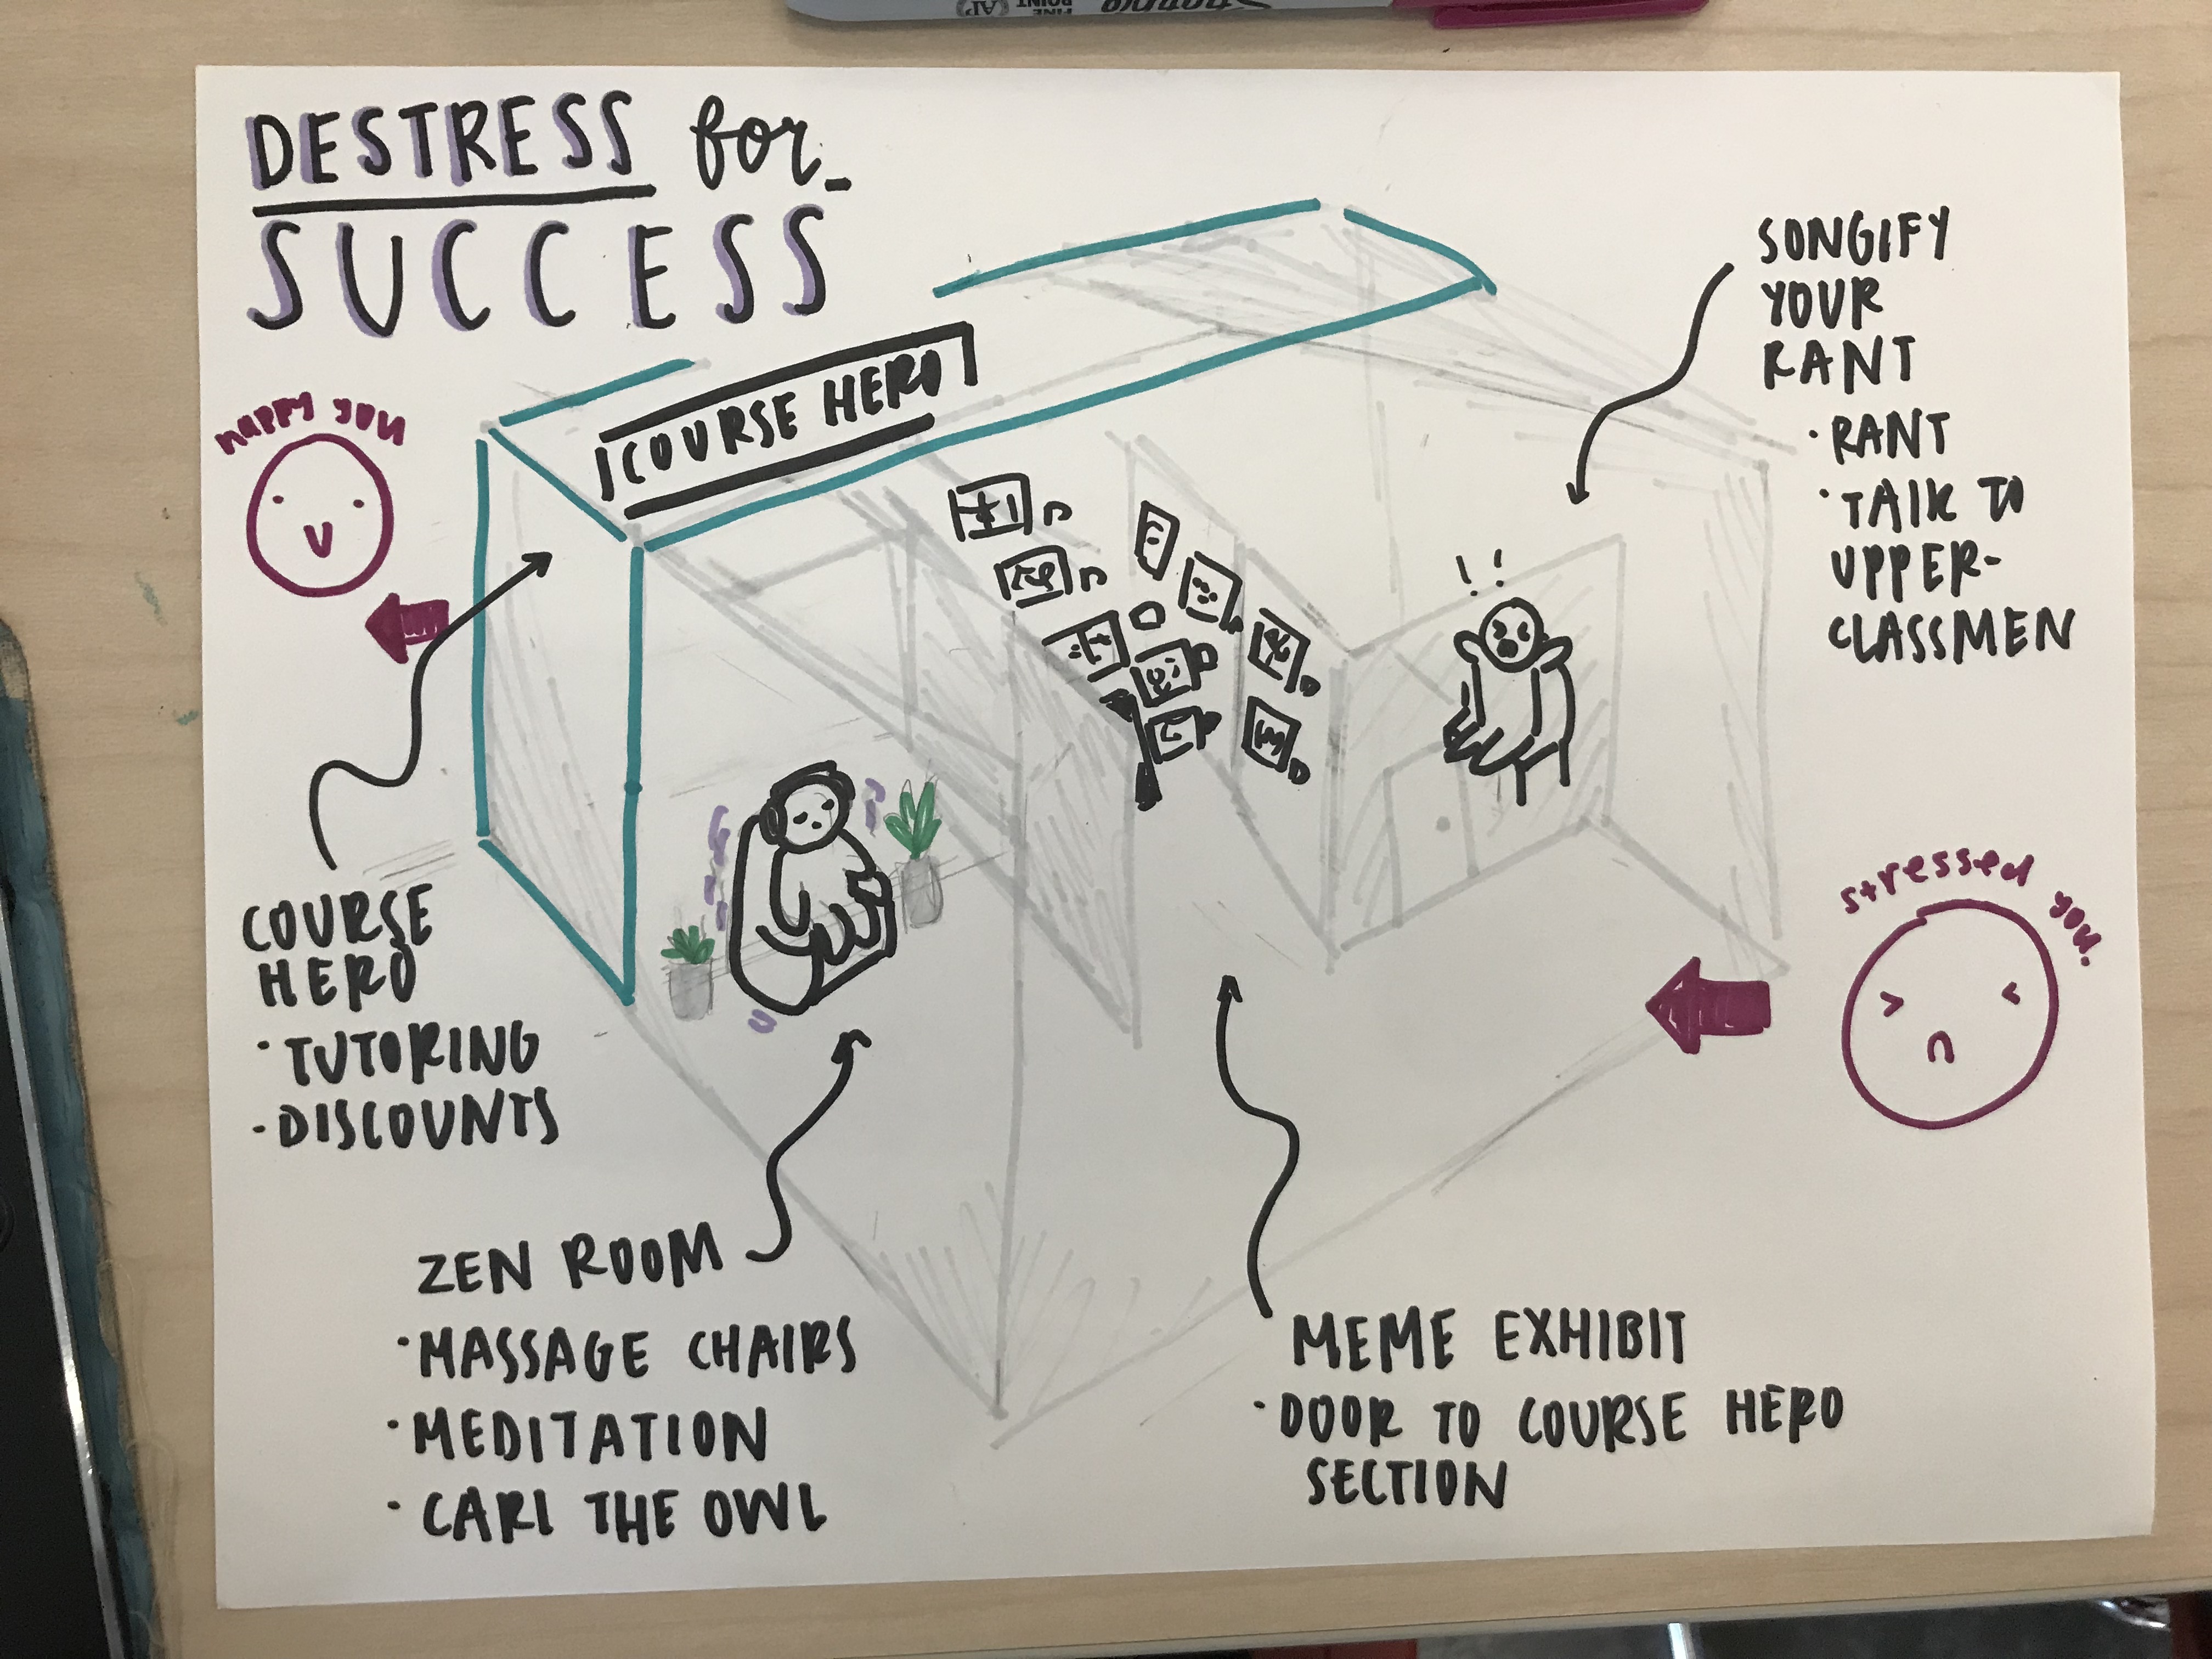 DESTRESS for-
SUCCESS
HAPPY YOU
COURSE HERO
COURSE
HERO
• TUTORING
• DISCOUNTS
ZEN ROOM
• MASSAGE CHAIRS
• MEDITATION
• CARL THE OWL
MEME EXHIBIT
• DOOR TO COURSE HERO
SECTION
SONGIFY
YOUR
RANT
• RANT
• TALK TO
UPPER-
CLASSMEN
stressed you.
FINE
POINT
AP
Sharpie